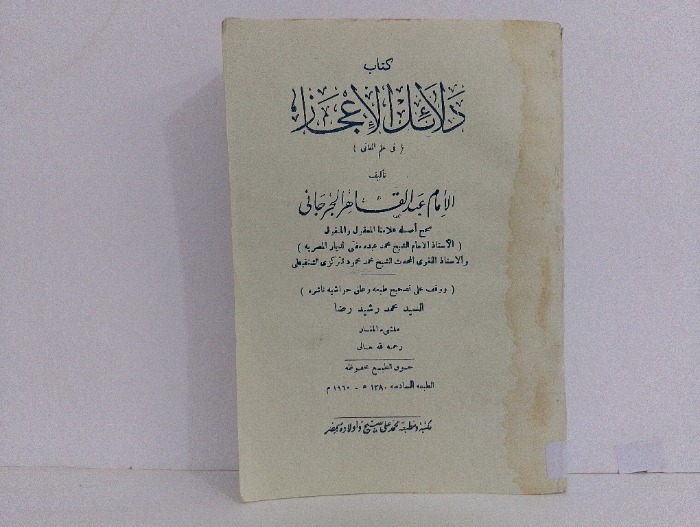 كتاب
دلائل الإعجاز
( فى علم المعانى )
تأليف
الإمام عبد القاهر الجرجانى
صحح أصله علامتا المعقول والمنقول
( الأستاذ الامام الشيخ محمد عبده مفتى الديار المصريه )
والاستاذ اللغوى المحدث الشيخ محمد محمود التركزى الشنقيطى
( ووقف على تصحيح طبعه وعلق حواشيه ناشره )
السيد محمد رشيد رضا
منشىء المنار
رحمه الله تعالى
حقوق الطبع محفوظه
الطبعه السادسه ١٣٨٠ ه - ١٩٦٠ م
مكتبة ومطبعة محمد على صبيح وأولاده بمصر